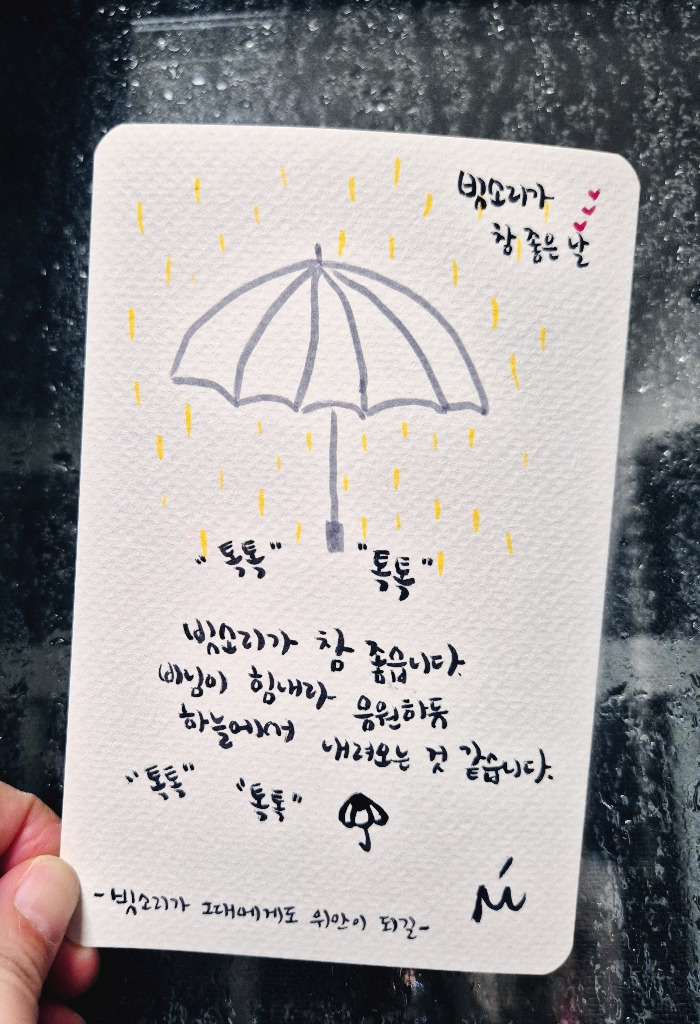 빗소리가
참 좋은 날
"톡톡" "톡톡"
빗소리가 참 좋습니다.
비님이 힘내라 응원하듯
하늘에서 내려오는 것 같습니다.
"톡톡" "톡톡"
-빗소리가 그대에게도 위안이 되길-